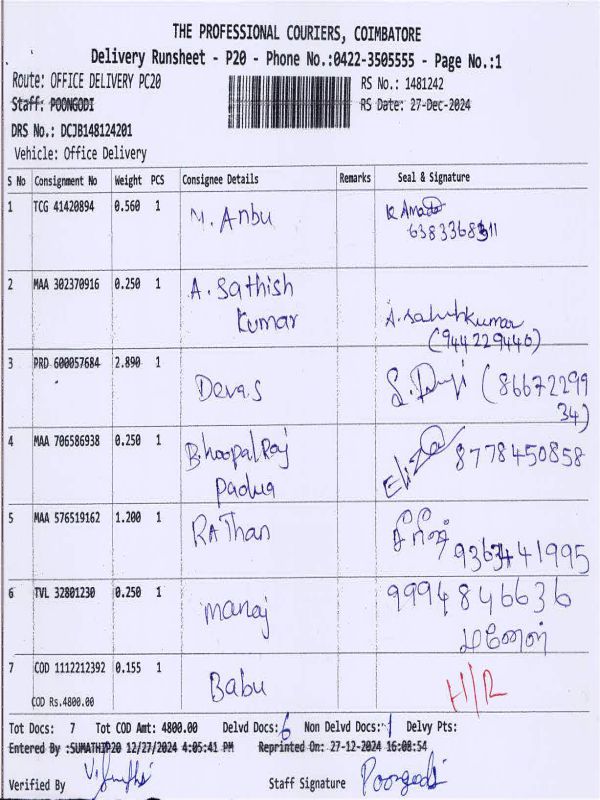 THE PROFESSIONAL COURIERS, COIMBATORE
Delivery Runsheet - P20 - Phone No.:0422-3505555 - Page No.:1
Route: OFFICE DELIVERY PC20 RS No.: 1481242
Staff: POONGODI RS Date: 27-Dec-2024
DRS No.: DCJB148124201
Vehicle: Office Delivery
S No Consignment No Weight PCS Consignee Details Remarks Seal & Signature
1 TCG 41420894 0.560 1 M. Anbu
2 MAA 302370916 0.250 1 A. Sathish
Kumar
(944229446)
3 PRD 600057684 2.890 1 Devas (86672299
34)
4 MAA 706586938 0.250 1 BhoopalRaj 8778450858
Padua
5 MAA 576519162 1.200 1 RAThan
6 TVL 32801230 0.250 1 manoj 9994846636
7 COD 1112212392 0.155 1 Babu H/R
COD Rs.4800.00
Tot Docs: 7 Tot COD Amt: 4800.00 Delvd Docs: 6 Non Delvd Docs: 1 Delvy Pts:
Entered By :SUMATHIP20 12/27/2024 4:05:41 PM Reprinted On: 27-12-2024 16:08:54
Verified By Staff Signature Poongodi